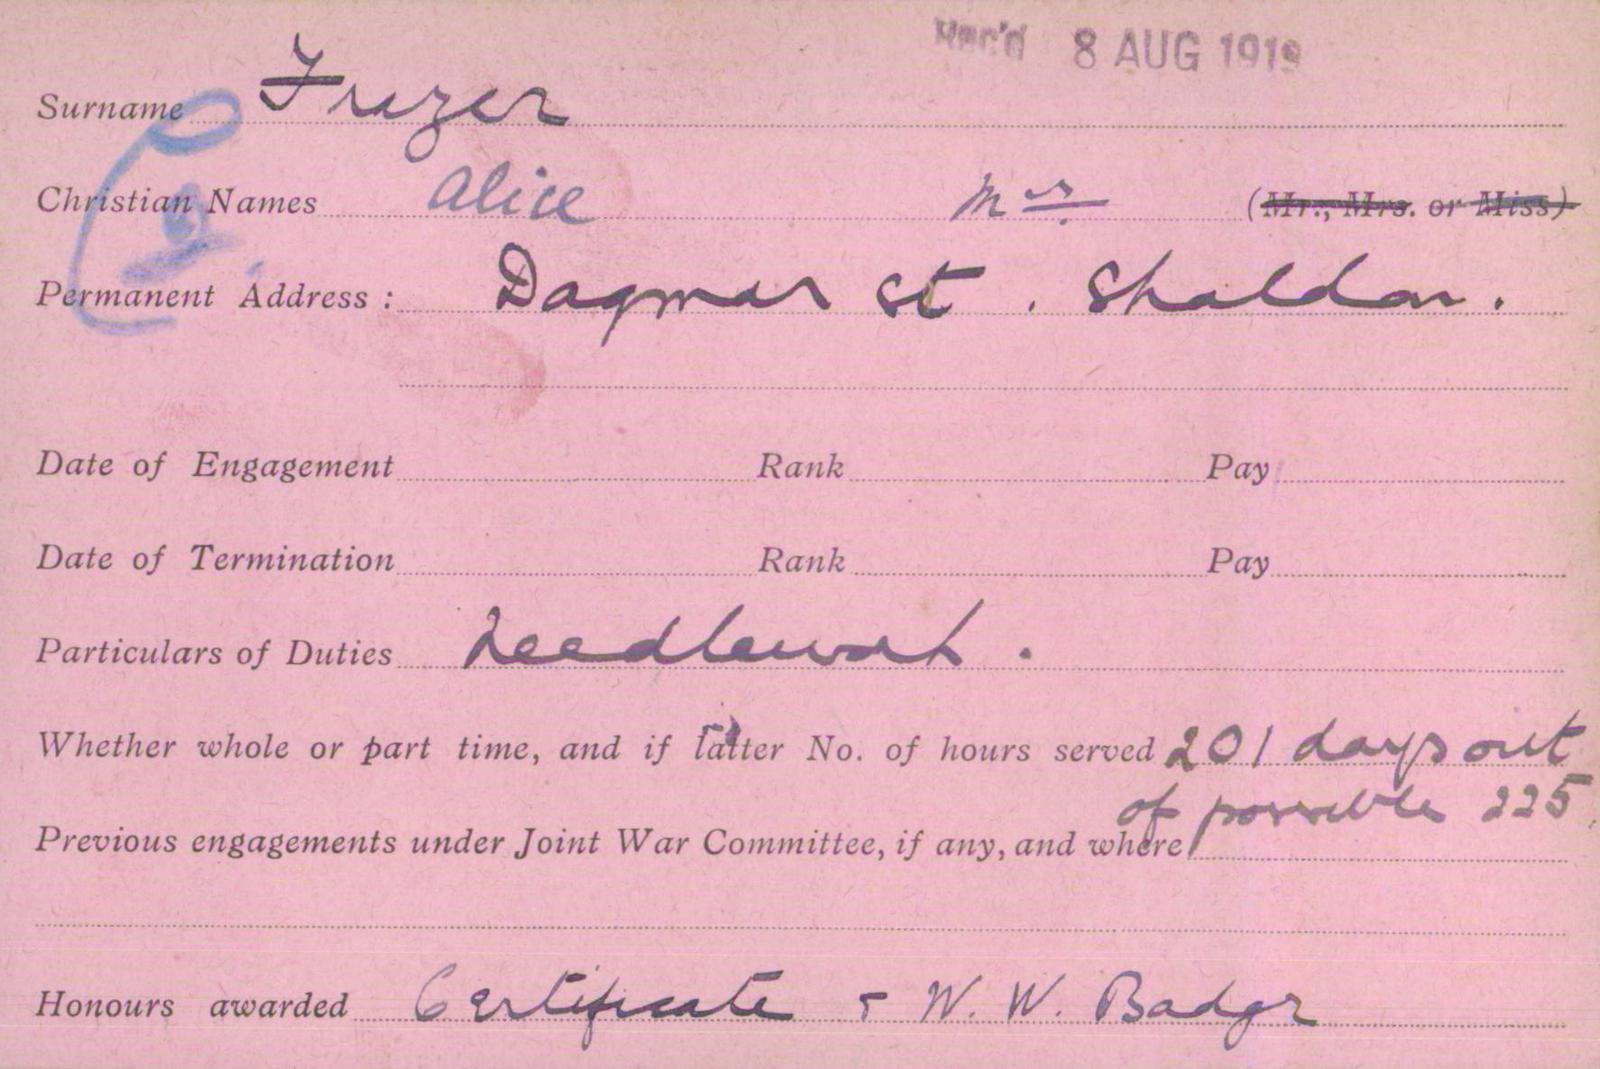 Rec'd 8 AUG 1919
Surname Frazer
Christian Names Alice Mrs. (Mr., Mrs. or Miss)
Permanent Address : Dagmar St. Shaldon.
Date of Engagement Rank Pay
Date of Termination Rank Pay
Particulars of Duties Needlework.
Whether whole or part time, and if latter No. of hours served 201 days out
of possible 225.
Previous engagements under Joint War Committee, if any, and where
Honours awarded Certificate & W. W. Badge